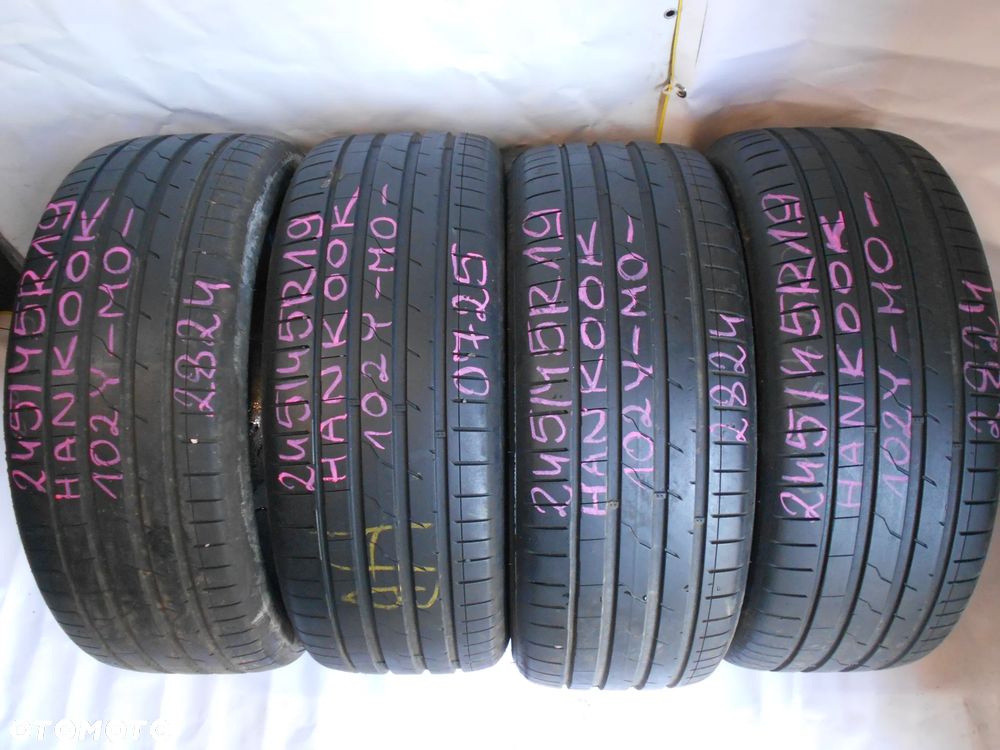 245/45R19
HANKOOK
102Y -MO-
2324
245/45R19
HANKOOK
102Y -MO-
0725
245/45R19
HANKOOK
102Y -MO-
2824
245/45R19
HANKOOK
102Y -MO-
2824
OTOMOTO